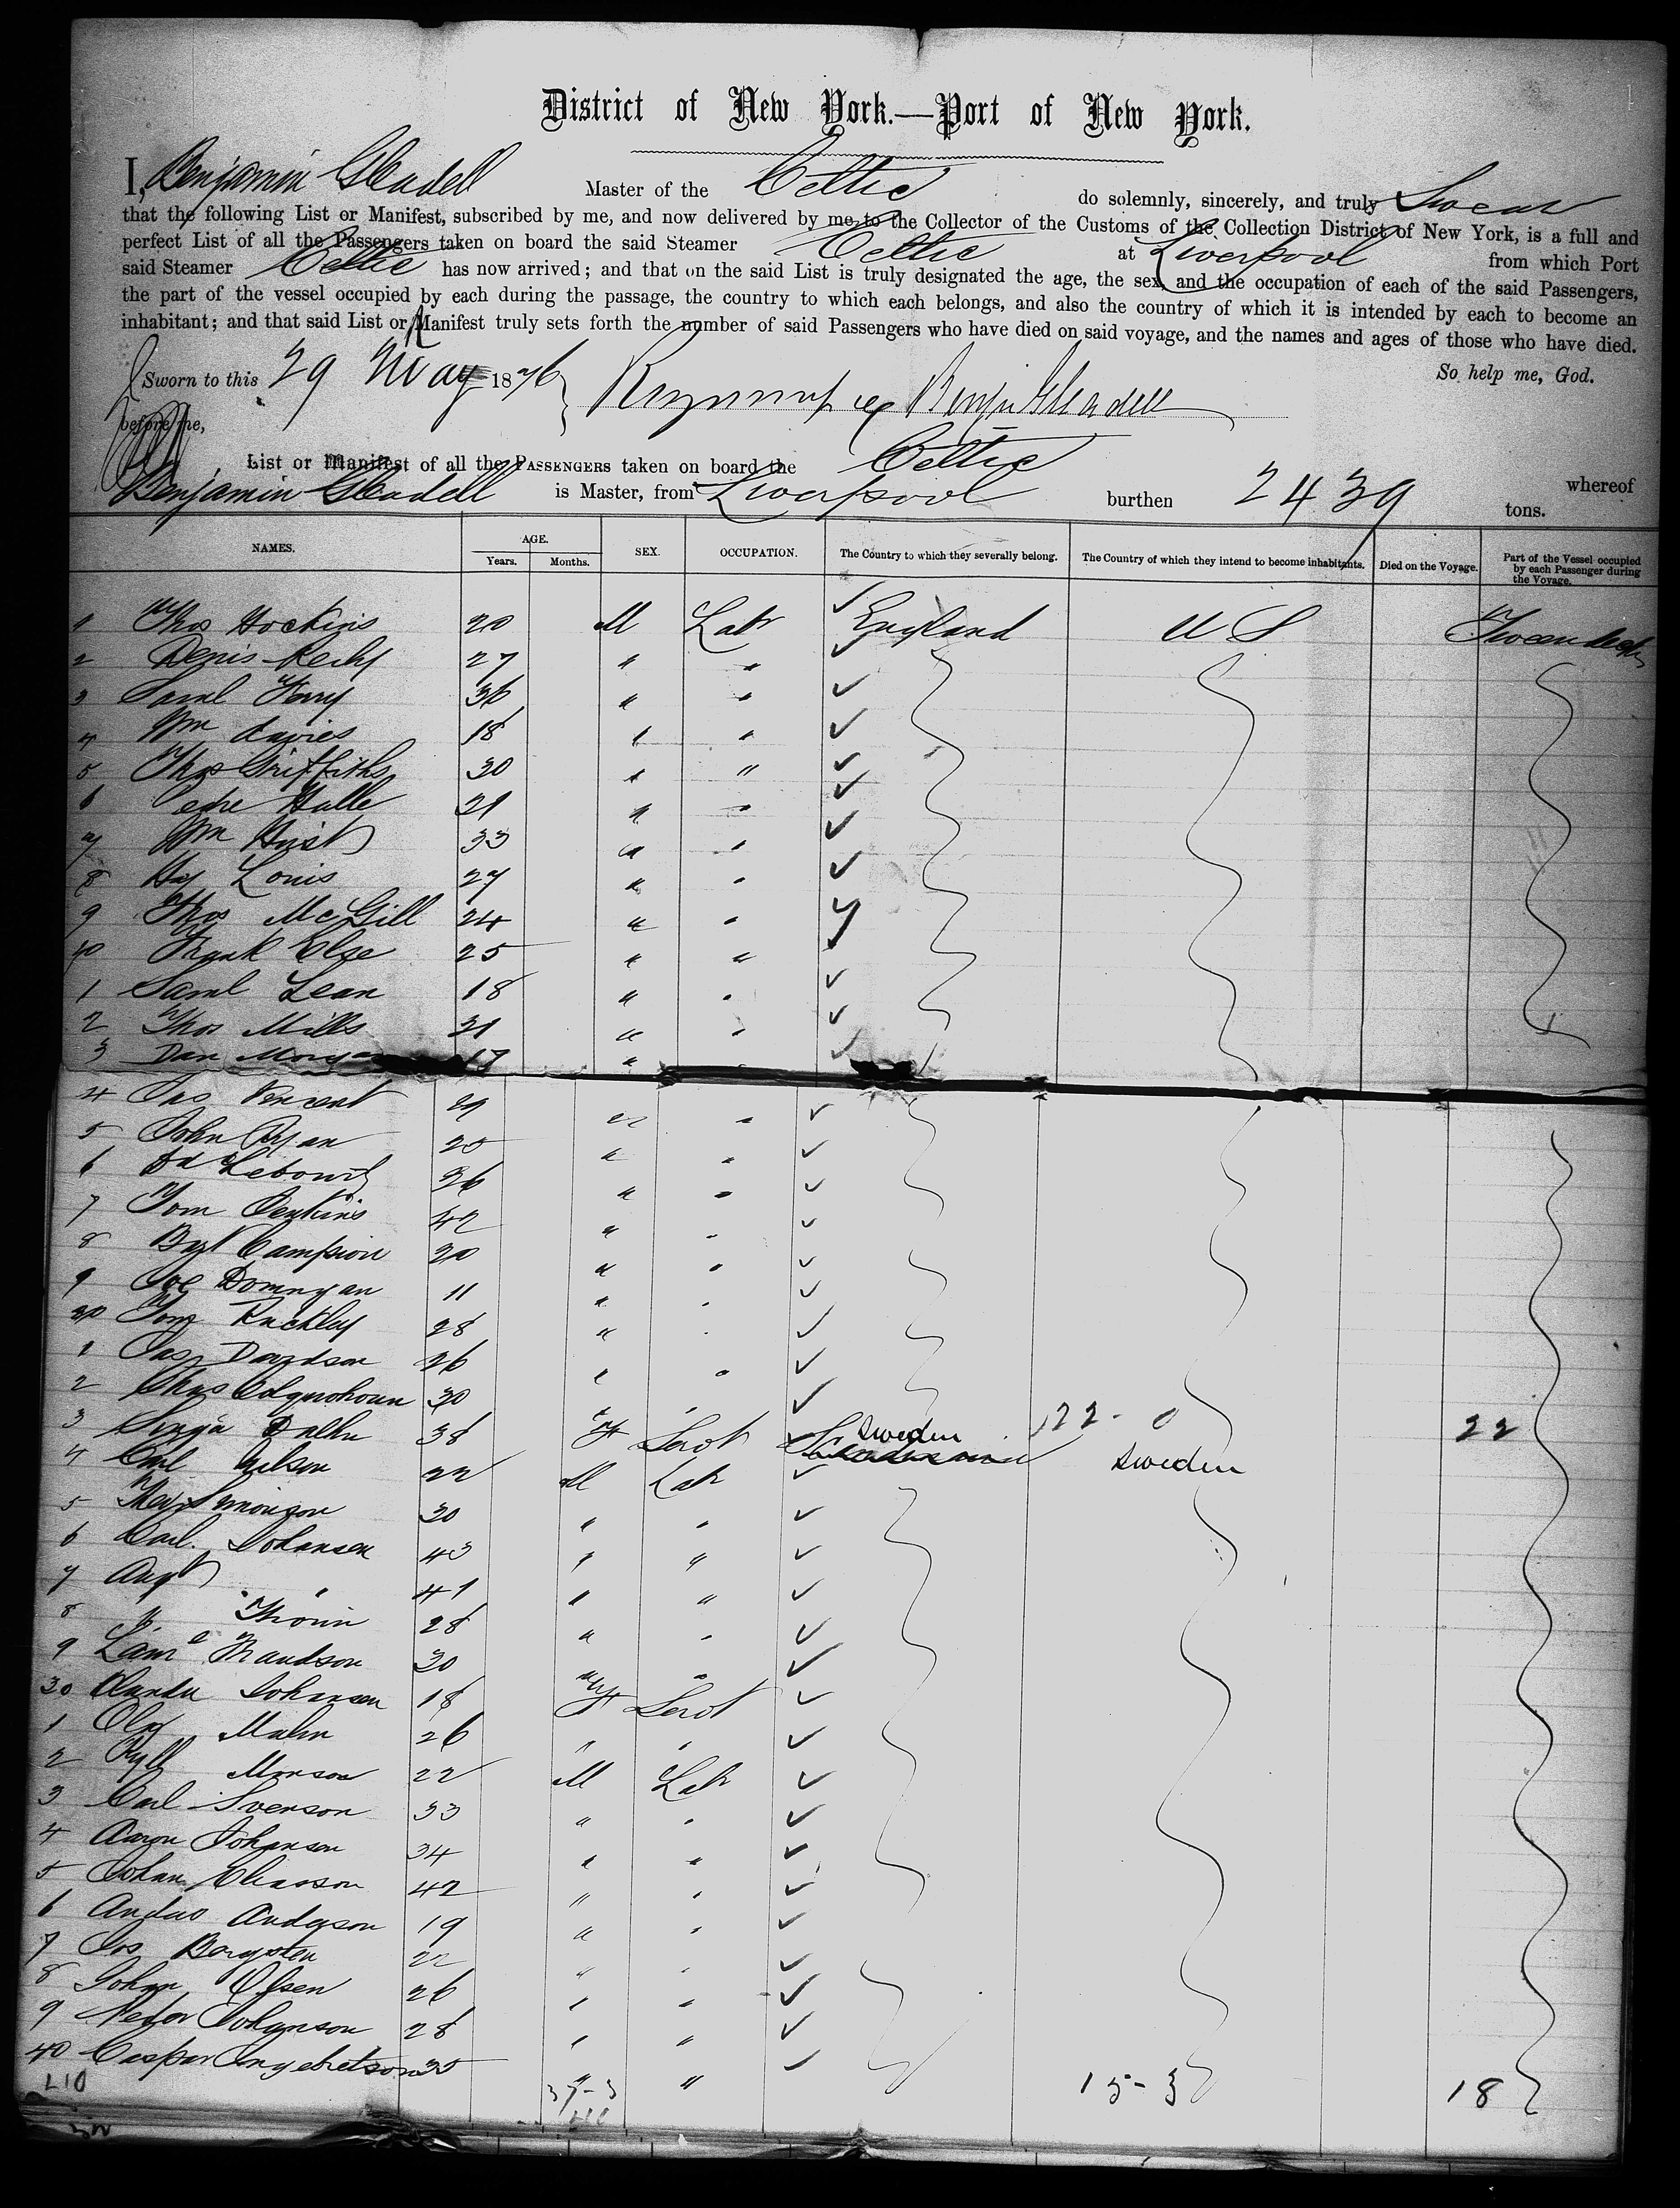 District of New York.—Port of New York.
I, Benjamin Gleadell Master of the Celtic do solemnly, sincerely, and truly Swear
that the following List or Manifest, subscribed by me, and now delivered by me to the Collector of the Customs of the Collection District of New York, is a full and
perfect List of all the Passengers taken on board the said Steamer Celtic at Liverpool from which Port
said Steamer Celtic has now arrived; and that on the said List is truly designated the age, the sex, and the occupation of each of the said Passengers,
the part of the vessel occupied by each during the passage, the country to which each belongs, and also the country of which it is intended by each to become an
inhabitant; and that said List or Manifest truly sets forth the number of said Passengers who have died on said voyage, and the names and ages of those who have died.
So help me, God.
Sworn to this 29 May 1876 Benj Gleadell
before me,
List or Manifest of all the PASSENGERS taken on board the Celtic whereof
Benjamin Gleadell is Master, from Liverpool burthen 2439 tons.
NAMES. AGE. Years. Months. SEX. OCCUPATION. The Country to which they severally belong. The Country of which they intend to become inhabitants. Died on the Voyage. Part of the Vessel occupied by each Passenger during the Voyage.
1 Thos Hockins 20 M Labr England U S Tween decks
2 Denis 27 " "
3 Saml 36 " "
4 Wm Davies 18 " "
5 Thos Griffiths 30 " "
6 21 " "
7 Wm Hirst 33 " "
8 Hy Louis 27 " "
9 Thos McGill 24 " "
10 Frank Else 25 " "
1 Saml Lean 18 " "
2 Thos Mills 21 " "
3 Dan Morgan 17 " "
4 Jas " "
5 John Ryan 25 " "
6 26 " "
7 Tom Jenkins 42 " "
8 Campion 20 " "
9 Joe 11 " "
20 Tom 28 " "
1 Jas Davidson 26 " "
2 Chas Colquohoun 30 " "
3 38 F Servt Sweden 22 - 0 22
4 Carl 22 M Labr Sweden
5 30 " "
6 Carl Johansen 43 " "
7 Augt " 41 " "
8 " 28 " "
9 30 " "
30 Johansen 18 F Servt
1 Malin 26 " "
2 Monson 22 M Labr
3 Carl Svenson 33 " "
4 Aaron Johansen 34 " "
5 Johan Eliasson 42 " "
6 Anders Anderson 19 " "
7 Jos Bergsten 22 " "
8 Johan Olsen 26 " "
9 Johanson 28 " "
40 Caspar Ingebretson 35 " "
37-3 15-3 18